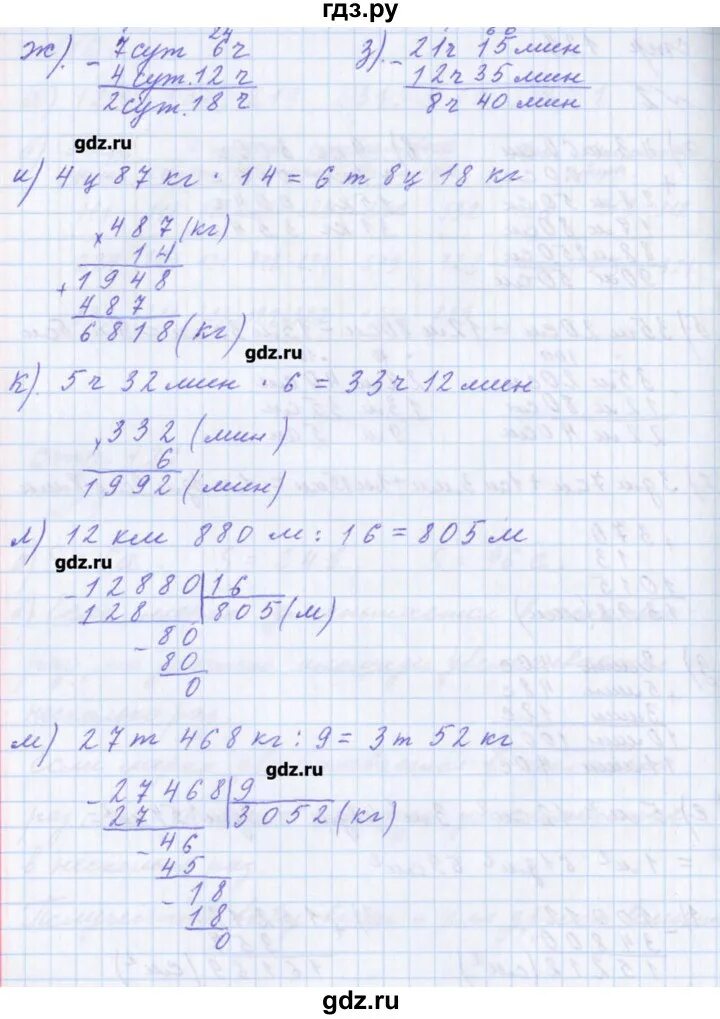 гдз.ру
ж). 24 з). 60
- 7 сут 6 ч - 21 ч 15 мин
4 сут. 12 ч 12 ч 35 мин
2 сут. 18 ч 8 ч 40 мин
gdz.ru
и) 4 ц 87 кг · 14 = 6 т 8 ц 18 кг
× 487 (кг)
14
+ 1948
487
6818 (кг)
gdz.ru
к). 5 ч 32 мин · 6 = 33 ч 12 мин
× 332 (мин)
6
1992 (мин)
л) 12 км 880 м : 16 = 805 м
gdz.ru
- 12880 | 16
128 805 (м)
- 80
80
0
м) 27 т 468 кг : 9 = 3 т 52 кг
gdz.ru
- 27468 | 9
27 3052 (кг)
- 46
45
- 18
18
0
gdz.ru